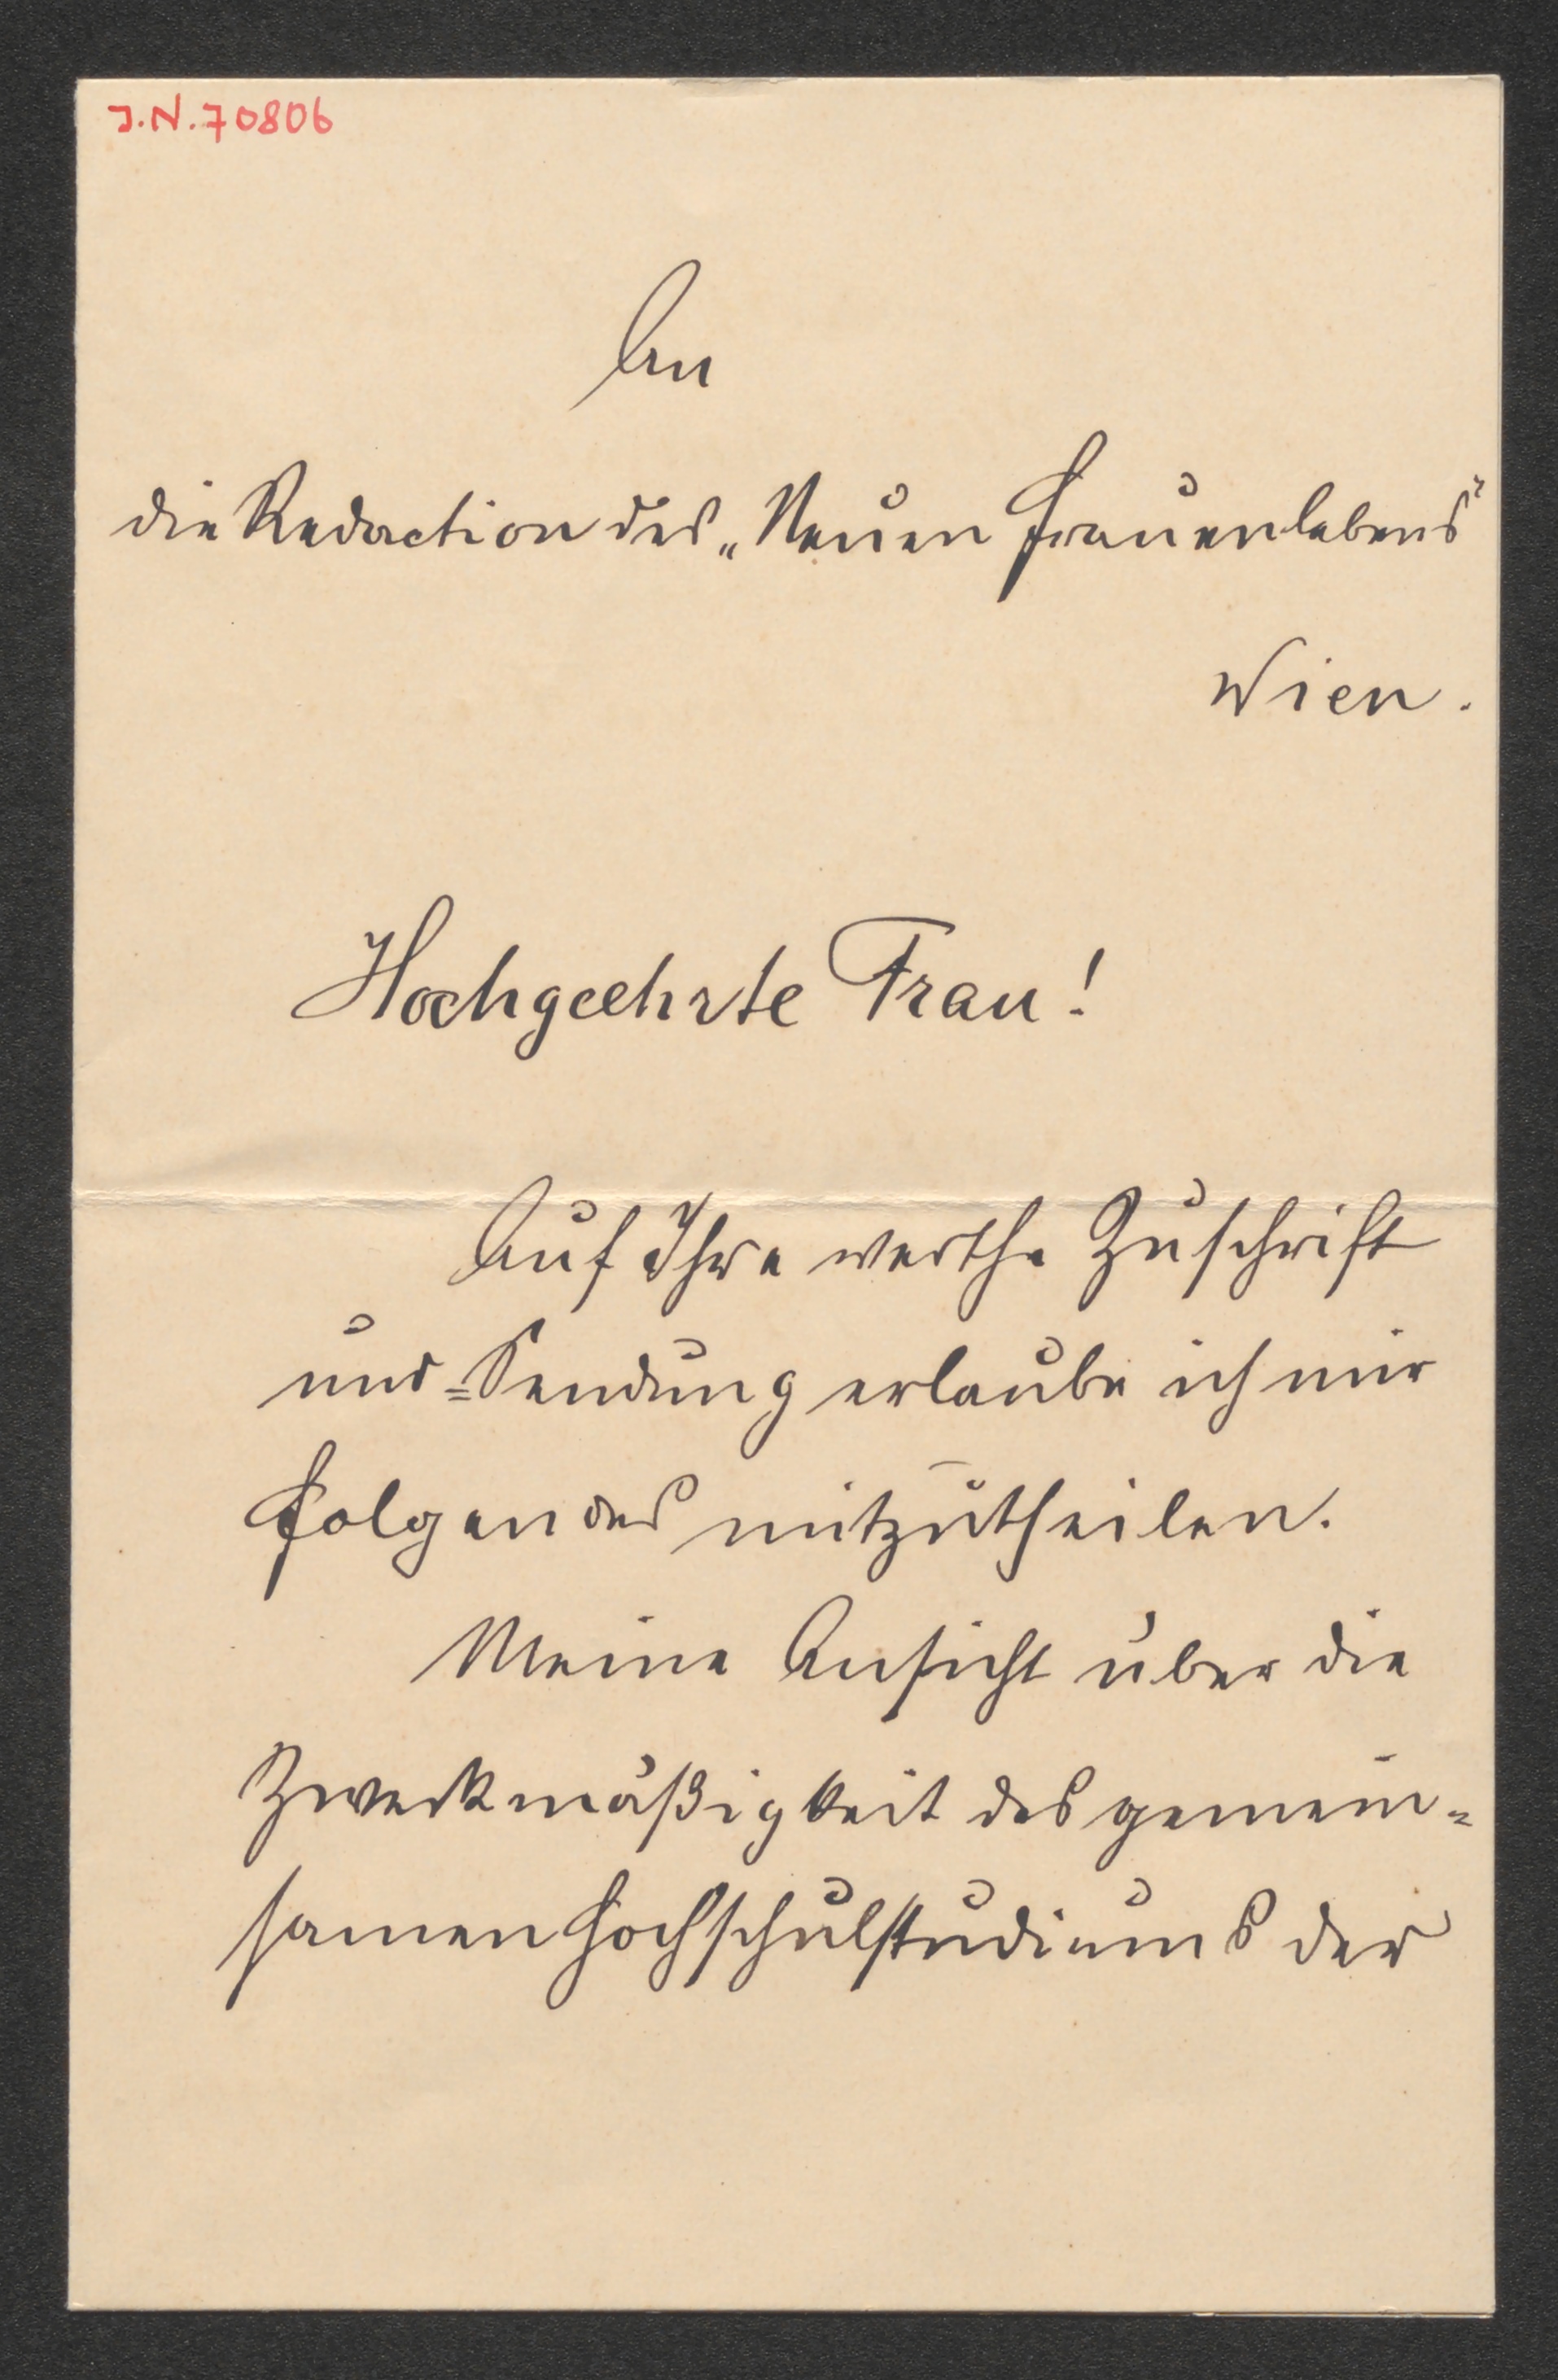 J.N. 70806
An
die Redaction des „Neuen Frauenlebens"
Wien.
Hochgeehrte Frau!
Auf Ihre werthe Zuschrift
und =Sendung erlaube ich mir
Folgendes mitzutheilen.
Meine Ansicht über die
Zweckmäßigkeit des gemein=
samen Hochschulstudiums der